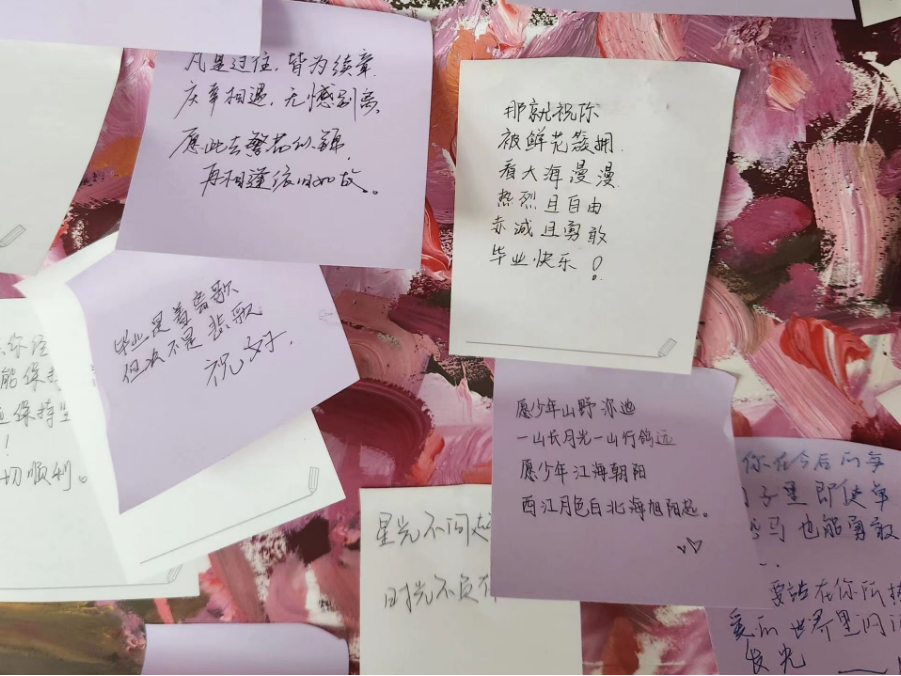 凡是过往，皆为续章
庆幸相遇，无憾别离
愿此去繁花似锦
再相逢依旧如故。
那就祝你
被鲜花簇拥
看大海漫漫
热烈且自由
赤诚且勇敢
毕业快乐！
毕业是首离歌
但决不是悲歌
祝好.
能保持
保持
！
切顺利。
愿少年山野
一山长月光一山行
愿少年江海朝阳
西江月色白北海旭阳起。
星光不问赶
时光不负有
你在今后的每
子里即使单
马也能勇敢
要站在你所热
爱的世界里闪
发光